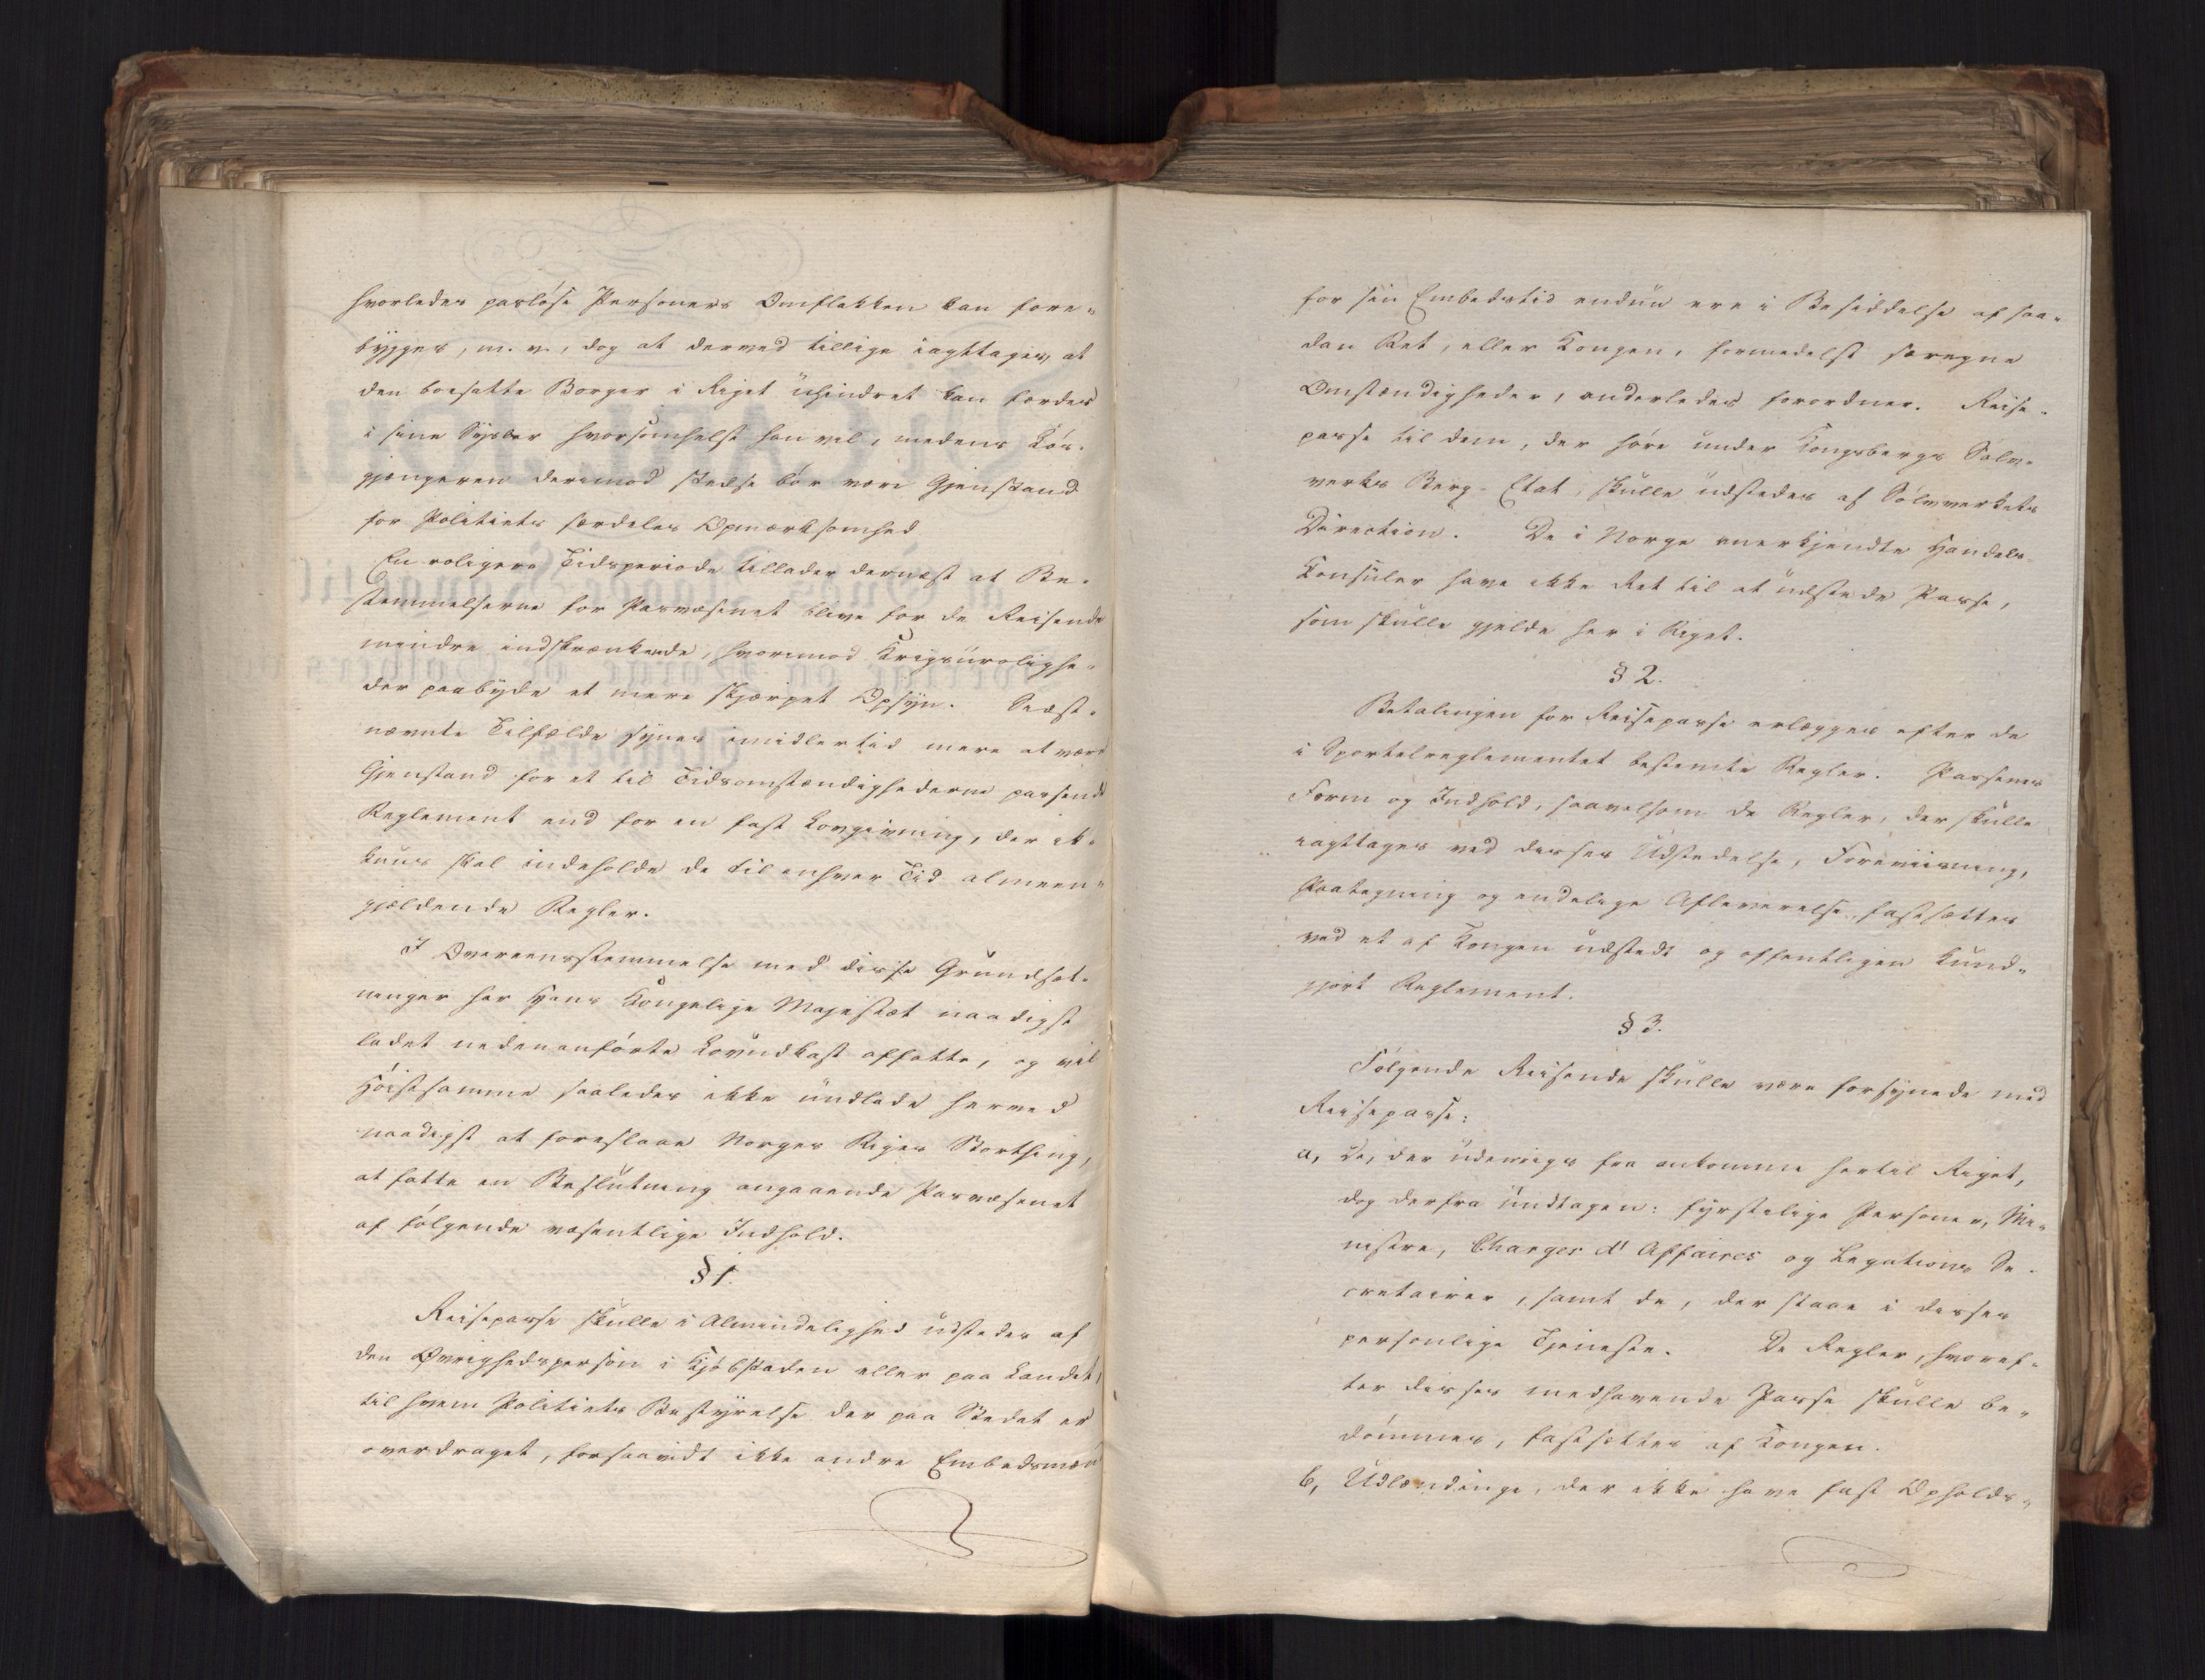 hvorledes pasløse Personers Omflakken kan fore-
bygges, m. v., dog at derved tillige iagttages, at
den bosatte Borger i Riget uhindret kan færdes
i sine Sysler hvorsomhelst han vil, medens Løs-
gjængeren derimod stedse bør være Gjenstand
for Politiets særdeles Opmærksomhed
En roligere Tidsperiode tillader dernæst at Be-
stemmelserne for Pasvæsenet blive for de Reisende
mindre indskrænkende, hvorimod Krigsurolighe-
der paabyde et mere skjærpet Opsyn. Sidst-
nævnte Tilfælde synes imidlertid mere at være
Gjenstand for et til Tidsomstændighederne passende
Reglement end for en fast Lovgivning, der ik-
kuns skal indeholde de til enhver Tid almeen-
gjældende Regler.
I Overeensstemmelse med disse Grundsæt-
ninger har Hans Kongelige Majestæt naadigst
ladet nedenanførte Lovudkast affatte, og vil
Høistsamme saaledes ikke undlade herved
naadigst at foreslaae Norges Riges Storthing,
at fatte en Beslutning angaaende Pasvæsenet
af følgende væsentlige Indhold.
§ 1.
Reisepasse skulle i Almindelighed udstedes af
den Øvrighedsperson i Kjøbstaden eller paa Landet,
til hvem Politiets Bestyrelse der paa Stedet er
overdraget, forsaavidt ikke andre Embedsmæn
for sin Embedstid endnu ere i Besiddelse af saa-
dan Ret, eller Kongen, formedelst særegne
Omstændigheder, anderledes forordner. Reise-
passe til dem, der høre under Kongsbergs Sølv-
verks Berg-Etat, skulle udstedes af Sølvverkets
Direction. De i Norge anerkjendte Handels-
Konsuler have ikke Ret til at udstede Passe,
som skulle gjelde her i Riget.
§ 2.
Betalingen for Reisepasse erlægges efter de
i Sportelreglementet bestemte Regler. Passenes
Form og Indhold, saavelsom de Regler, der skulle
iagttages ved disses Udstedelse, Foreviisning,
Paategning og endelige Afleverelse, fastsættes
ved et af Kongen udstedt og offentligen kund-
gjort Reglement.
§ 3.
Følgende Reisende skulle være forsynede med
Reisepasse:
a, De, der udenrigs fra ankomme hertil Riget,
dog derfra undtagen: fyrstelige Personer, Mi-
nistre, Charges d'Affaires og Legations Se-
cretairer, samt de, der staae i disses
personlige Tjeneste. De Regler, hvoref-
ter disses medhavende Passe skulle be-
dømmes, fastsættes af Kongen.
b, Udlændinge, der ikke have fast Opholds-